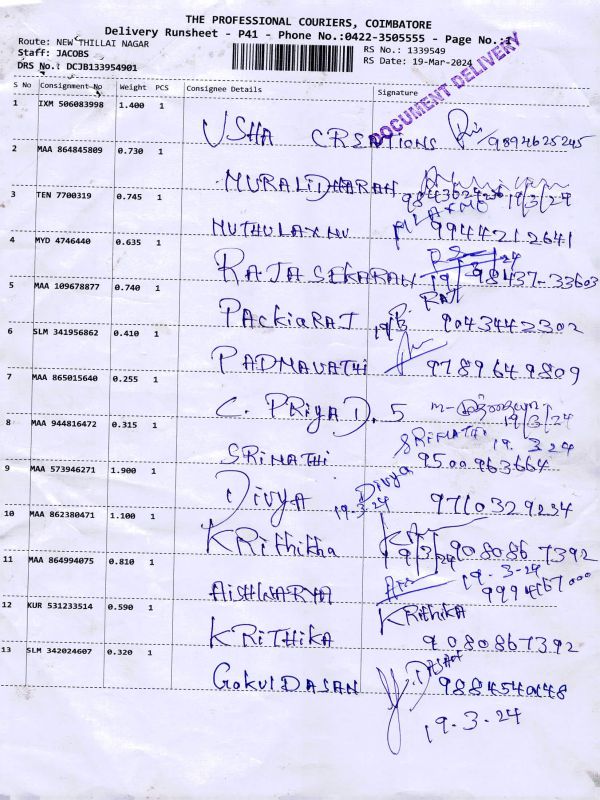 THE PROFESSIONAL COURIERS, COIMBATORE
Delivery Runsheet - P41 - Phone No.:0422-3505555 - Page No.:1
Route: NEW THILLAI NAGAR
RS No.: 1339549
Staff: JACOBS
RS Date: 19-Mar-2024
DRS No.: DCJB133954901
DOCUMENT DELIVERY
S No Consignment No Weight PCS Consignee Details Signature
1 IXM 506083998 1.400 1
USHA CRSATIONS 9894625245
2 MAA 864845809 0.730 1
MURALIDHARAN 19/3/24
3 TEN 7700319 0.745 1
MUTHULAXMU 9944212641
4 MYD 4746440 0.635 1
RAJASEKARAN 19/ 98437-33603
5 MAA 109678877 0.740 1
RAJ
PACKIARAJ 19/3. 9043442302
6 SLM 341956862 0.410 1
PADMAVATHI 9789649809
7 MAA 865015640 0.255 1
C. PRIYA D. 5 19/3/24
8 MAA 944816472 0.315 1
SRIMATHI 19.3.24
SRIMATHI 9500963664
9 MAA 573946271 1.900 1
DIVYA Divya 19.3.24 9710329234
10 MAA 862380471 1.100 1
KRithikha 19/3/24 9080867392
11 MAA 864994075 0.810 1
19.3-24
AISHWARYA
12 KUR 531233514 0.590 1
KRithika
KRITHIKA 9080867392
13 SLM 342024607 0.320 1
GOKULDASAN
19.3.24